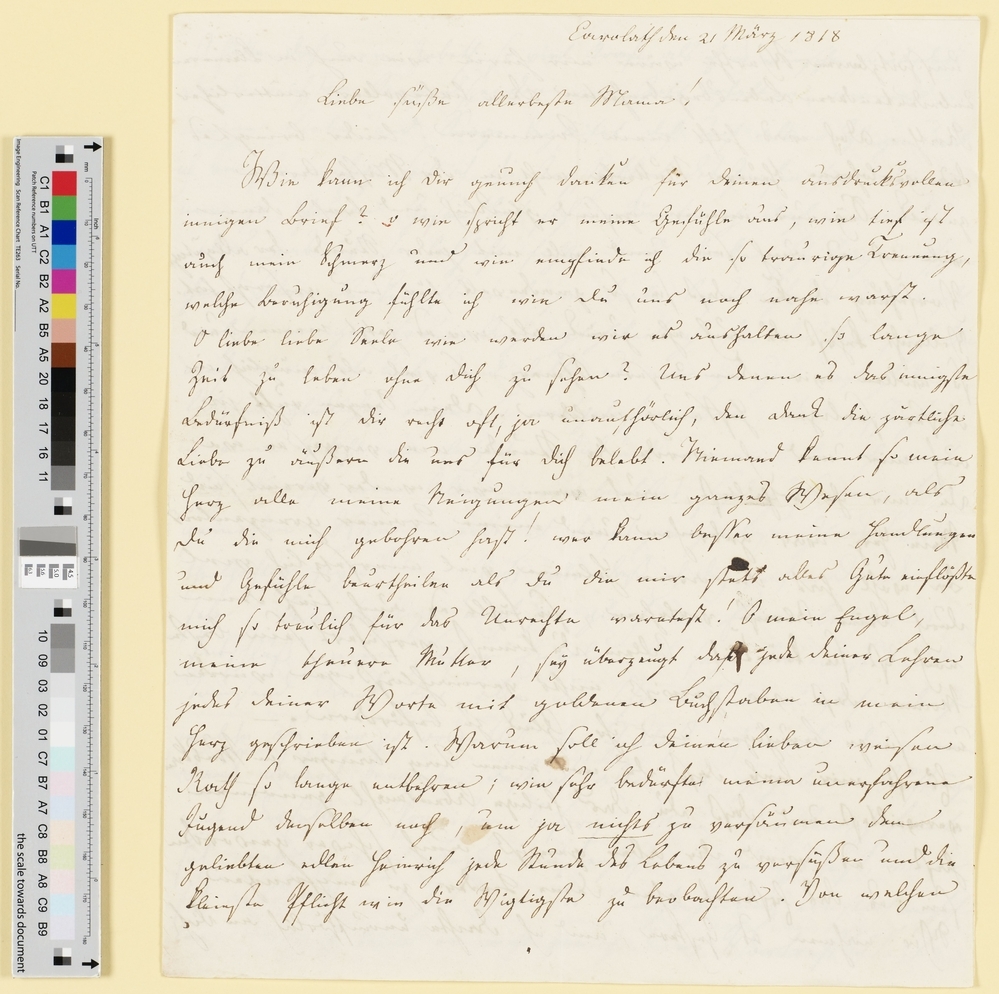 Carolath den 21 März 1818
Liebe süße allerbeste Mama!
Wie kann ich Dir genug danken für deinen ausdrucksvollen
innigen Brief? o wie spricht er meine Gefühle aus, wie tief ist
auch mein Schmerz und wie empfinde ich die so traurige Trennung,
welche Beruhigung fühlte ich wie Du uns noch nahe warst.
O liebe liebe Seele wie werden wir es aushalten so lange
Zeit zu leben ohne Dich zu sehen? Uns denen es das innigste
Bedürfniß ist Dir recht oft, ja unaufhörlich, den Dank die zärtliche
Liebe zu äußern die uns für Dich belebt. Niemand kennt so mein
Herz alle meine Neigungen mein ganzes Wesen, als
Du die mich gebohren hast! wer kann besser meine Handlungen
und Gefühle beurtheilen als Du die mir stets alles Gute einflößte
mich so treulich für das Unrechte warntest! O mein Engel,
meine theuere Mutter, sey überzeugt daß jede deiner Lehren
jedes deiner Worte mit goldenen Buchstaben in mein
Herz geschrieben ist. Warum soll ich deinen lieben weisen
Rath so lange entbehren; wie sehr bedürfte meine unerfahrene
Jugend desselben noch, um ja nichts zu versäumen dem
geliebten edlen Heinrich jede Stunde des Lebens zu versüßen und die
kleinste Pflicht wie die Wigtigste zu beobachten. Von welchen
Image Engineering Scan Reference Chart TE263 Serial No.
Patch Reference numbers on UTT
C1 B1 A1 C2 B2 A2 B5 A5 20 18 17 16 11
10 09 03 02 01 C7 B7 A7 C8 B8 A8 C9 B9
the scale towards document